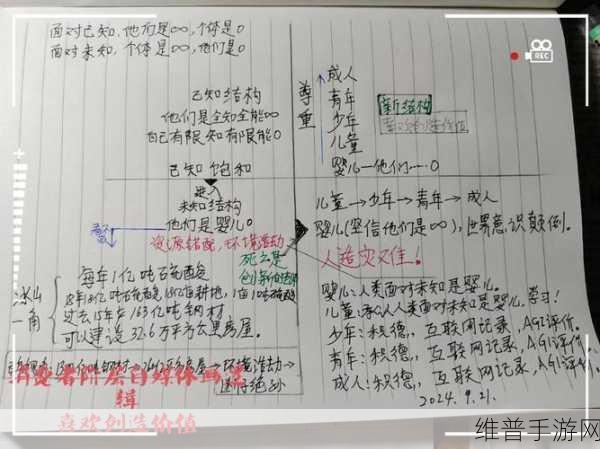 面对已知,他们是∞,个体是0
面对未知,个体是∞,他们是0
REC
已知结构
他们是全知全能∞
自己有限知有限能0
已知饱和
未知结构
他们是婴儿0
资源错配,环境滞动
尊重
成人
青年
少年
儿童
婴儿—他们…0
新结构
儿童→少年→青年→成人
婴儿(坚信他们是∞),世界意识颠倒。
人造灾难!
冰山一角
每年1亿吨石花酸
过去15年产163亿吨钢材
可以建设32.6万平方公里房屋。
婴儿:人类面对未知是婴儿。
儿童:承认人类面对未知是婴儿,学习!
少年:积德,互联网记录,AGI评价。
青年:积德,互联网记录,AGI评价。
成人:积德,互联网记录,AGI评价。
2024.9.21.
消费者阶层自媒体画思
辑
喜欢创造价值
维普手游网